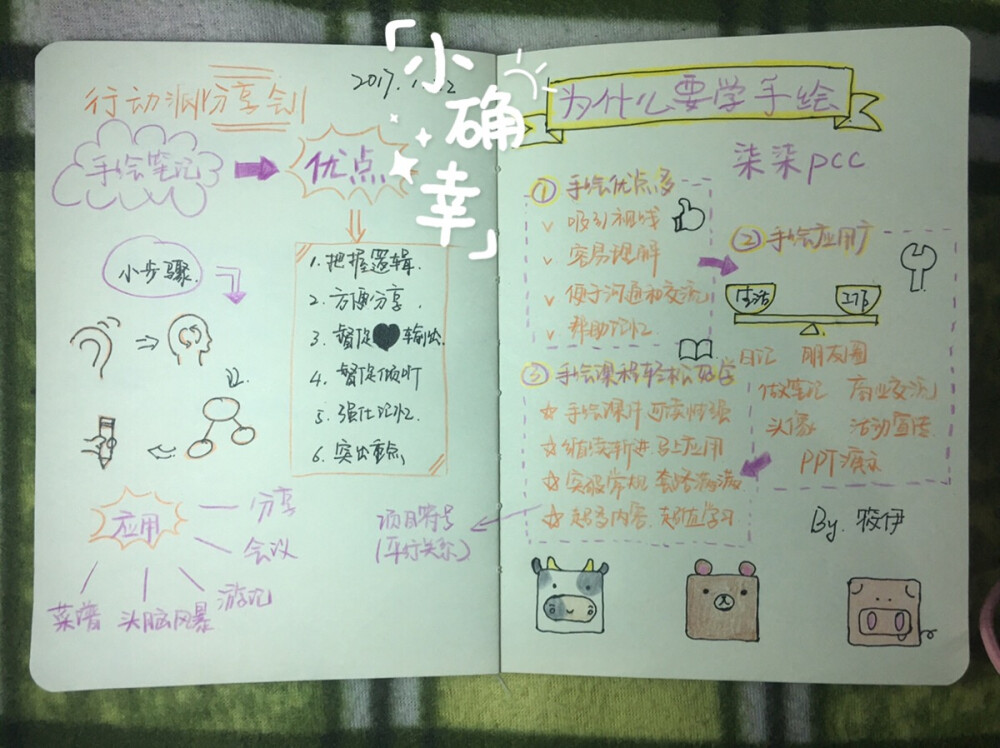 「小确幸」
行动派分享会
2017.
手绘笔记
优点
小步骤
1. 把握逻辑.
2. 方便分享.
3. 督促 输出.
4. 督促倾听
5. 强化记忆.
6. 突出重点.
应用
分享
会议
游记
头脑风暴
菜谱
项目符号
(平行关系)
为什么要学手绘
柒柒pcc
① 手绘优点多
v 吸引视线
v 容易理解
v 便于沟通和交流
v 帮助记忆
② 手绘应用广
生活 工作
日记 朋友圈
做笔记 商业交流
头像 活动宣传
PPT演示
③ 手绘课程轻松好学
☆ 手绘课件 可读性强
☆ 循序渐进 马上应用
☆ 突破常规 套路满满
☆ 超多内容 超值学习
By. 筱伊